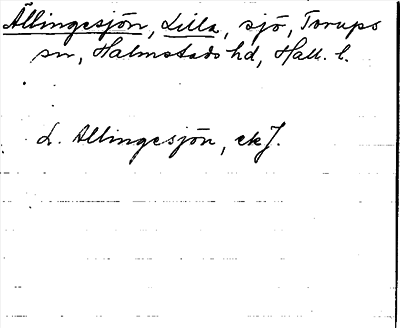 Ällingesjön, Lilla, sjö, Torups
sn, Halmstads hd, Hall. l.
L. Allingesjön, ek J.